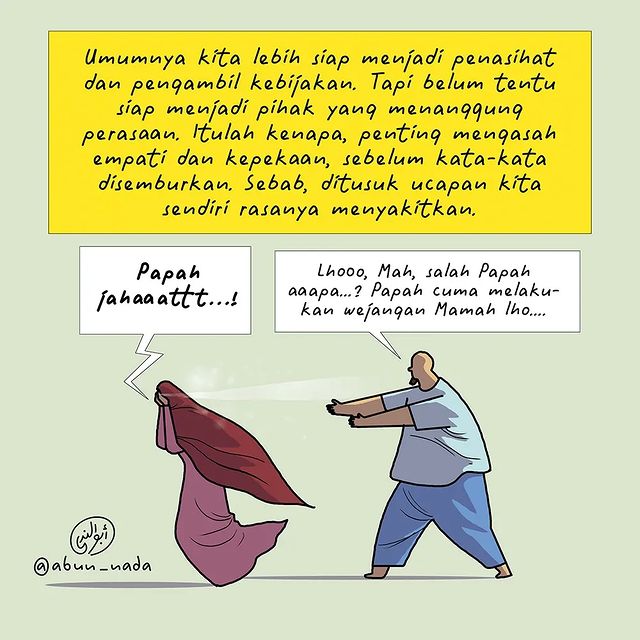 Umumnya kita lebih siap menjadi penasihat
dan pengambil kebijakan. Tapi belum tentu
siap menjadi pihak yang menanggung
perasaan. Itulah kenapa, penting mengasah
empati dan kepekaan, sebelum kata-kata
disemburkan. Sebab, ditusuk ucapan kita
sendiri rasanya menyakitkan.
Papah
jahaaattt...!
Lhooo, Mah, salah Papah
aaapa...? Papah cuma melaku-
kan wejangan Mamah lho....
@abun_nada